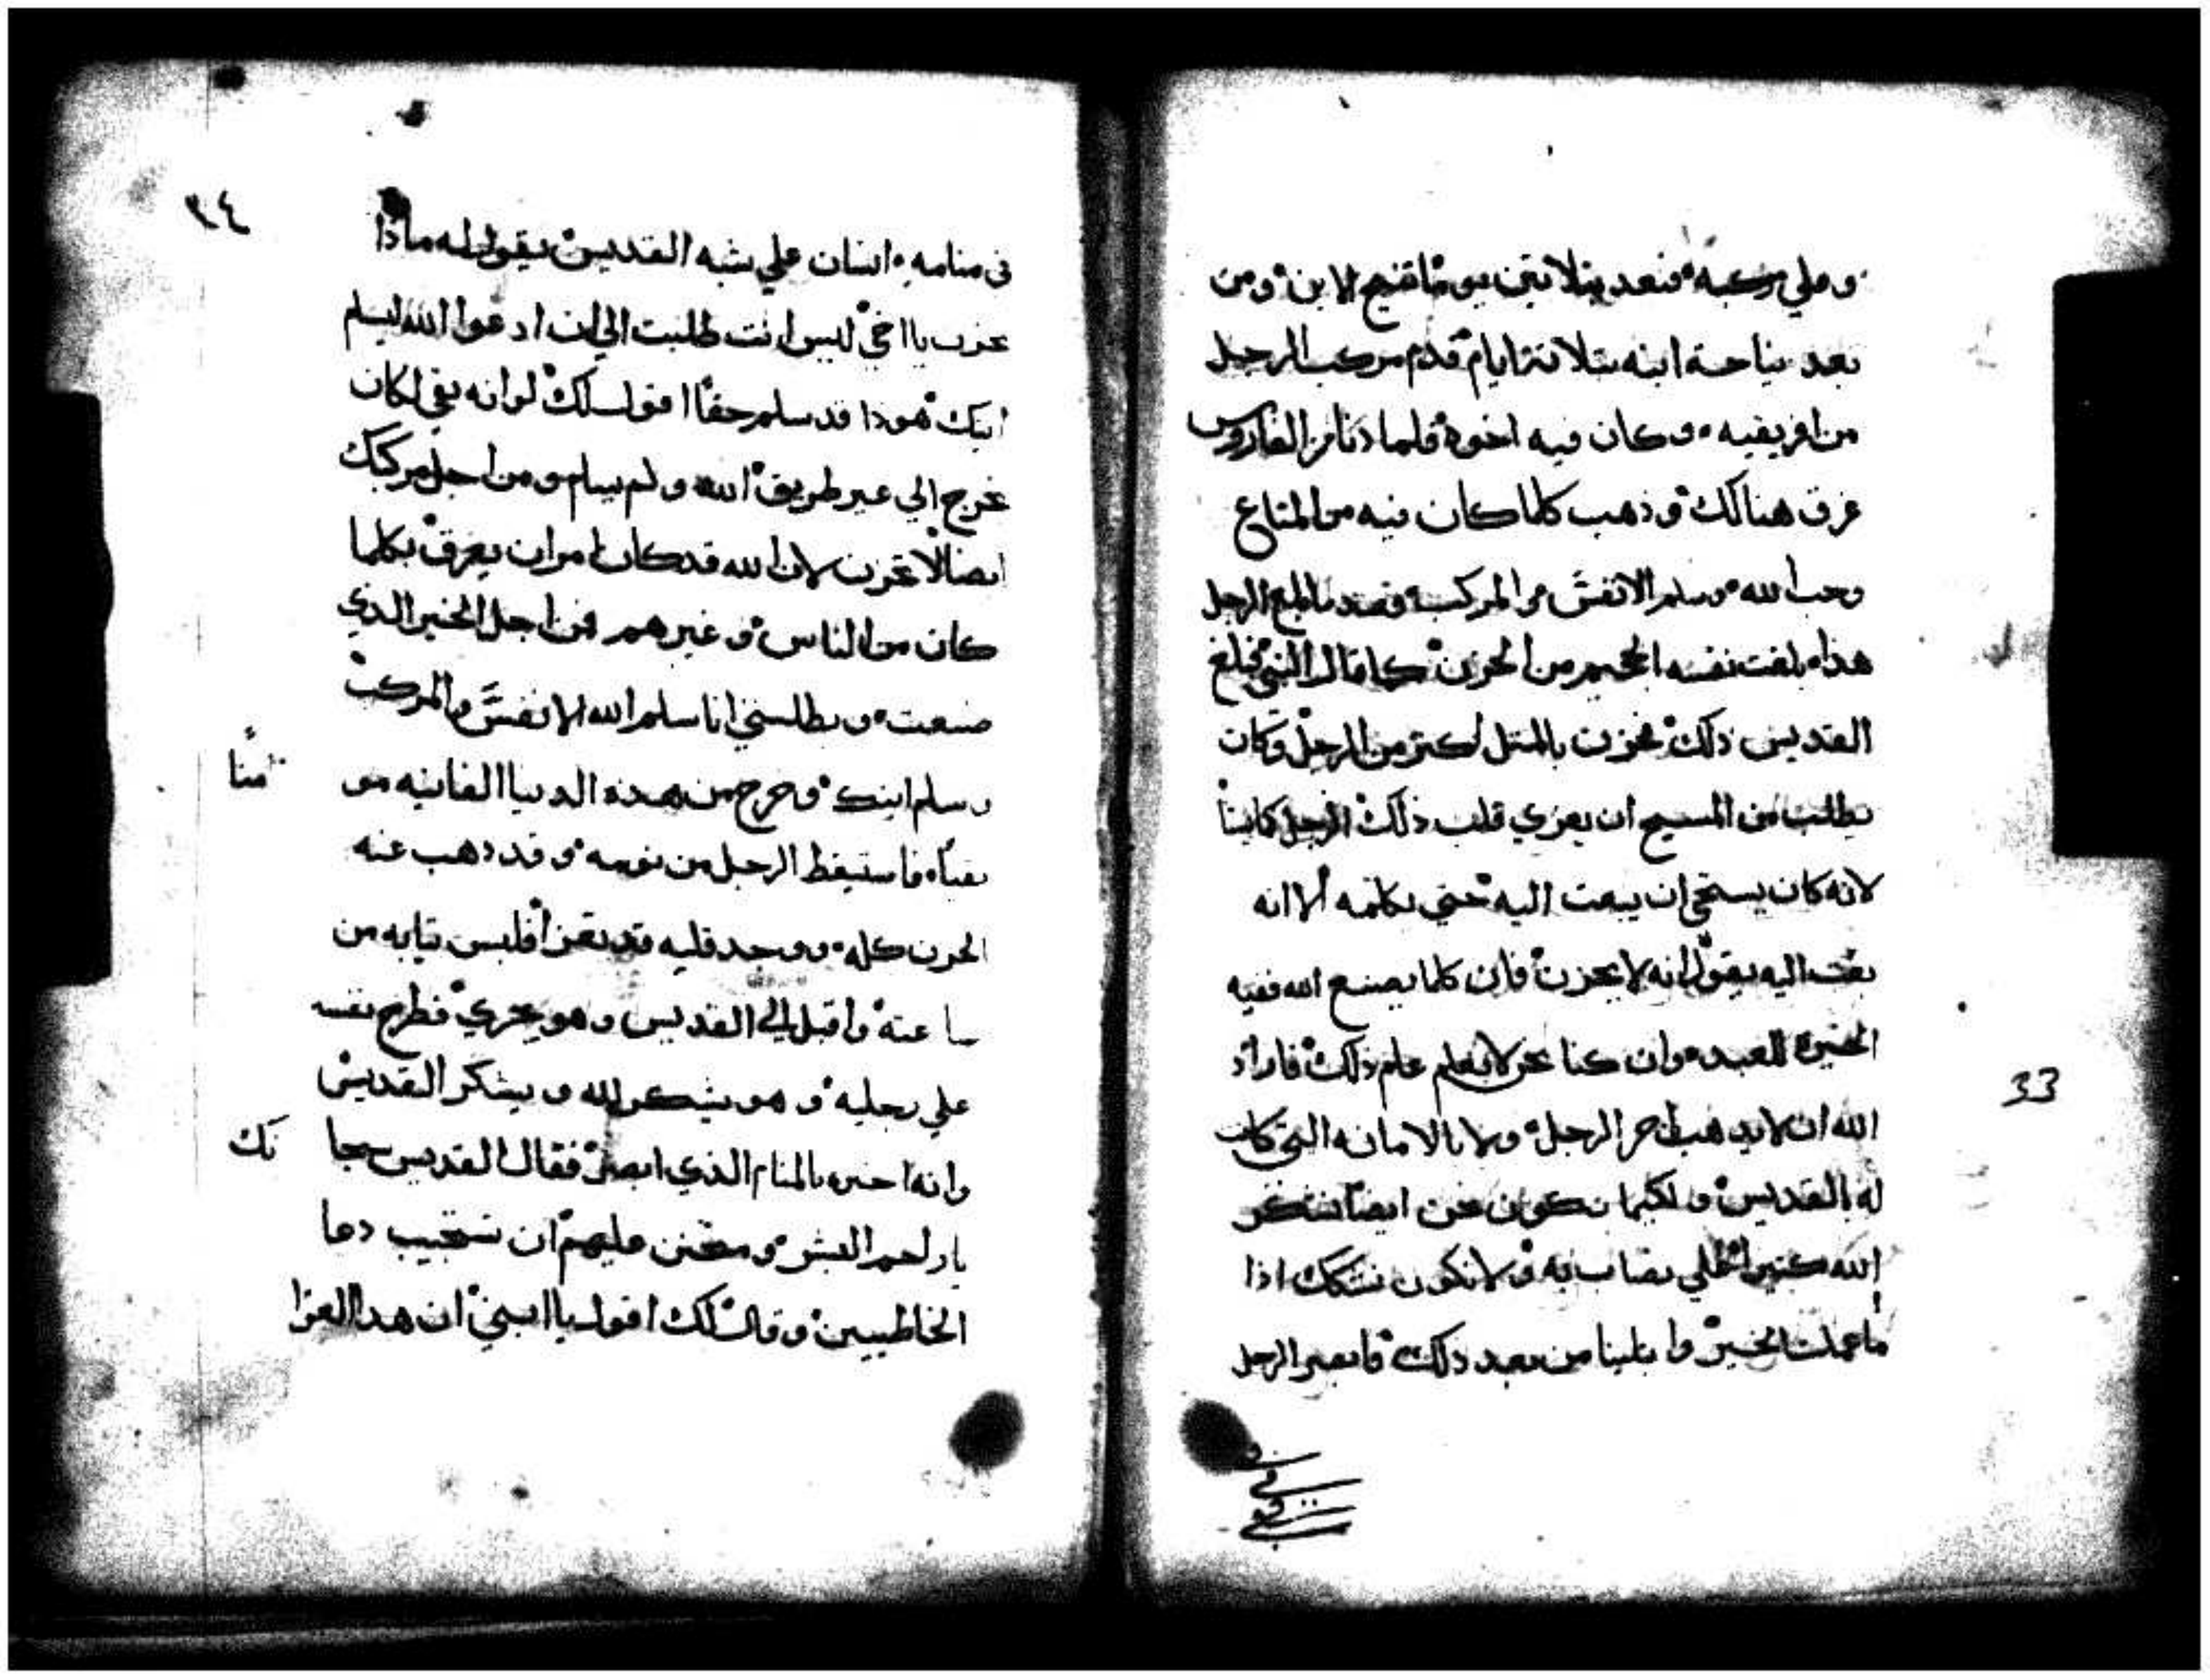 وعلي مركبه فبعد بثلاثين يوما تنيح الابن ومن
بعد نياحة ابنه بثلاثة ايام قدم مركب الرجل
من افريقيه وكان فيه اخوه فلما دنا من الفاروس
غرق هنالك وذهب كلما كان فيه من المتاع
وحب الله وسلم الانفس من المركب فعند ما بلغ الرجل
هذا بلغت نفسه الجحيم من الحزن كما قال النبي فبلغ
القديس ذلك فحزن بالمثل اكثر من الرجل وكان
يطلب من المسيح ان يعزي قلب ذلك الرجل
لانه كان يستحي ان يبعت اليه حتي يكلمه الا انه
بعت اليه يقول انه لا يحزن فان كلما يصنع الله ففيه
الخيره للعبد وان كنا نحن لا نعلم علم ذلك فاراد
الله ان لا يذهب اجر الرجل ولا بالامانه التي كانت
له بالقديس ولكيما نكون نحن ايضا نشكر
الله كتيرا علي يصاب به ولا نكون نشكك اذا
ما عملت الخير وابتلينا من بعد ذلك فابصر الرجل
33
٣٤
في منامه انسان علي شبه القديس يقول له ماذا
تحزن يا اخي ليس انت طلبت الي ان ادعوا الله ليسلم
ابنك هوذا قد سلم حقا اقول لك لو انه بقي لكان
يخرج الي غير طريق الله ولم يسلم ومن اجل مركبك
ايضا لا تحزن لان الله قد كان امر ان يغرق بكلما
كان من الناس وغيرهم فمن اجل الخير الذي
صنعت وبطلبتي انا سلم الله الانفس والمركب
وسلم ابنك وخرج من هذه الدنيا الفانيه مو
منا
نقيا فاستيقظ الرجل من نومه وقد ذهب عنه
الحزن كله ووجد قلبه قد تعزا فلبس تيابه من
ساعته واقبل الي القديس وهو يجري فطرح نفسه
علي رجليه وهو يشكر الله ويشكر القديس
وانه اخبره بالمنام الذي ابصر فقال القديس سبحا
نك
يا راحم البشر ومتحنن عليهم ان تستجيب دعا
الخاطيين وقال لك اقول يا ابني ان هذا العزا